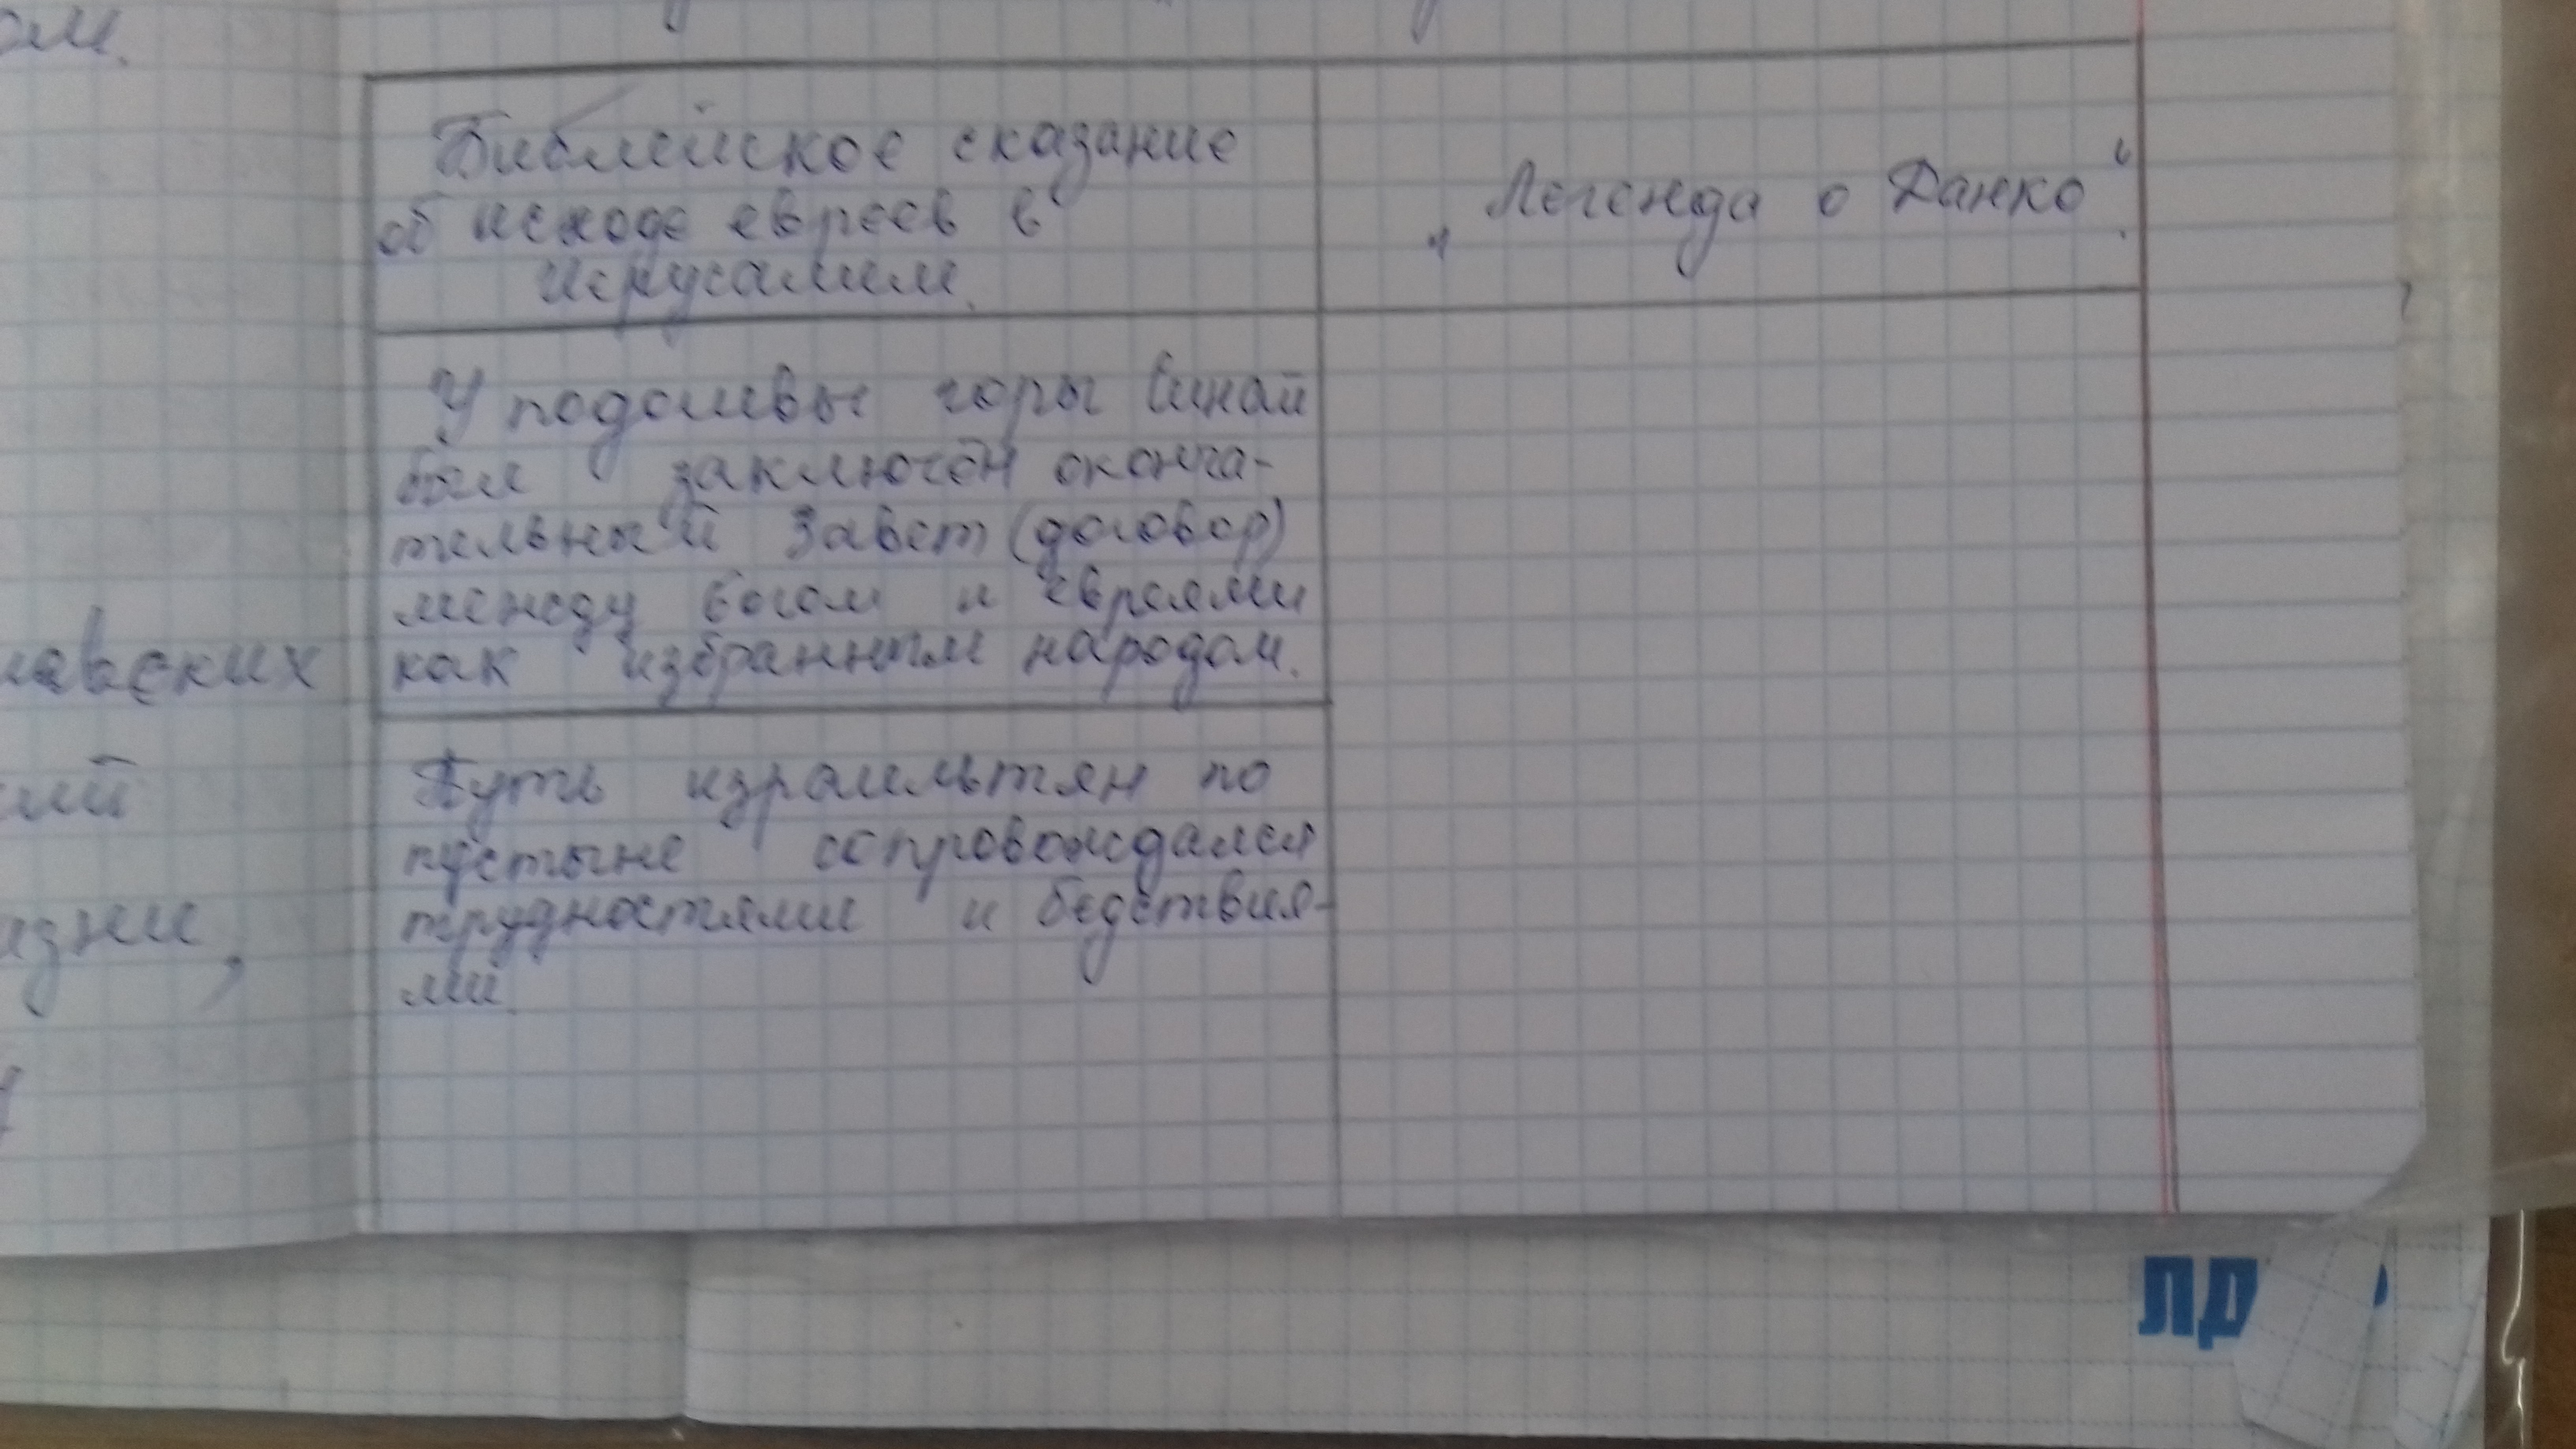 Библейское сказание
об исходе евреев в
Иерусалим.
„Легенда о Данко“.
У подошвы горы Синай
был заключён оконча-
тельный Завет (договор)
между Богом и евреями
как избранным народом.
Путь израильтян по
пустыне сопровождался
трудностями и бедствия-
ми